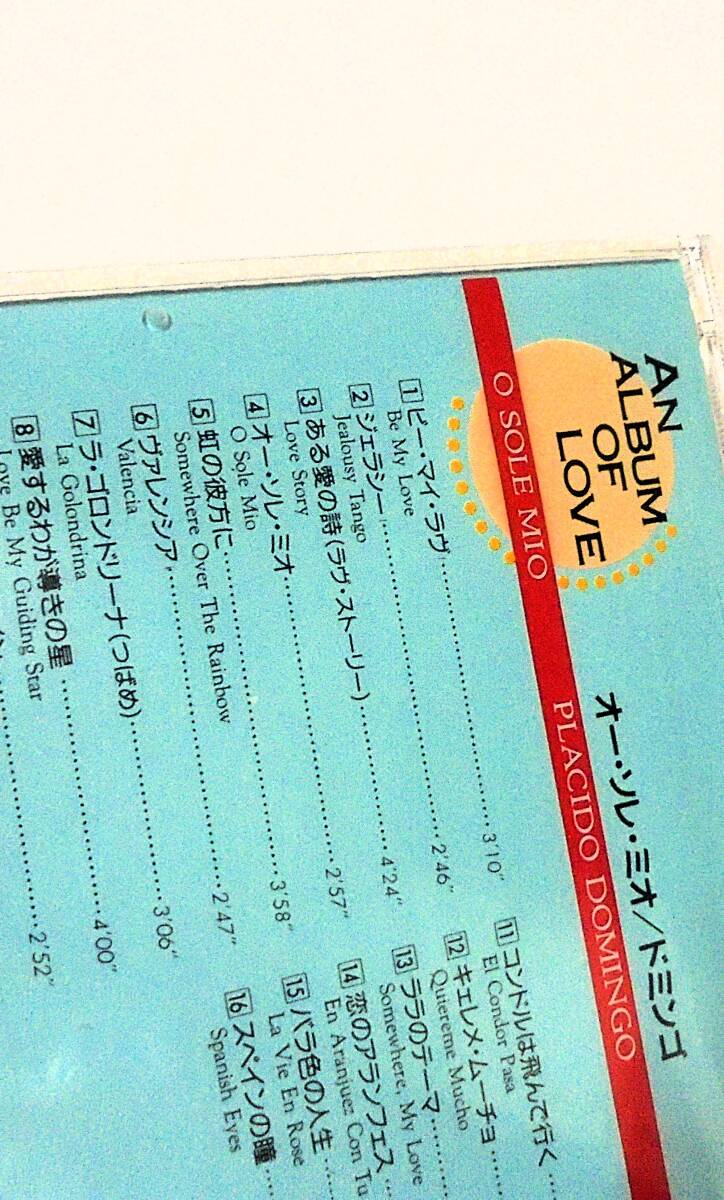 AN
ALBUM
OF
LOVE
オー・ソレ・ミオ／ドミンゴ
O SOLE MIO PLACIDO DOMINGO
1 ビー・マイ・ラヴ 3'10"
Be My Love
2 ジェラシー 2'46"
Jealousy Tango
3 ある愛の詩(ラヴ・ストーリー) 4'24"
Love Story
4 オー・ソレ・ミオ 2'57"
O Sole Mio
5 虹の彼方に 3'58"
Somewhere Over The Rainbow
6 ヴァレンシア 2'47"
Valencia
7 ラ・ゴロンドリーナ(つばめ) 3'06"
La Golondrina
8 愛するわが導きの星 4'00"
Love Be My Guiding Star
2'52"
11 コンドルは飛んで行く
El Condor Pasa
12 キェレメ・ムーチョ
Quiereme Mucho
13 ララのテーマ
Somewhere, My Love
14 恋のアランフェス
En Aranjuez Con Tu
15 バラ色の人生
La Vie En Rose
16 スペインの瞳
Spanish Eyes